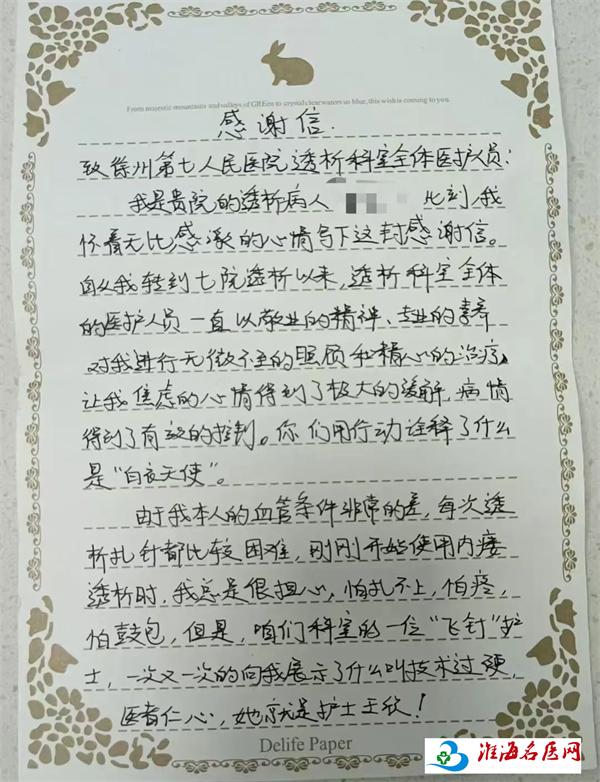 From majestic mountains and valleys of GREen to crystal clear waters so blue, this wish is coming to you.
感谢信.
致徐州第七人民医院透析科室全体医护人员:
我是贵院的透析病人 此刻我
怀着无比感激的心情写下这封感谢信。
自从我转到七院透析以来,透析科室全体
的医护人员一直以敬业的精神、专业的素养
对我进行无微不至的照顾和精心的治疗,
让我焦虑的心情得到了极大的缓解,病情
得到了有效的控制。你们用行动诠释了什么
是“白衣天使”。
由于我本人的血管条件非常的差,每次透
析扎针都比较困难,刚刚开始使用内瘘
透析时,我总是很担心,怕扎不上,怕疼,
怕鼓包,但是,咱们科室的一位“飞针”护
士,一次又一次的向我展示了什么叫技术过硬,
医者仁心,她就是护士王欣!
Delife Paper
淮海名医网